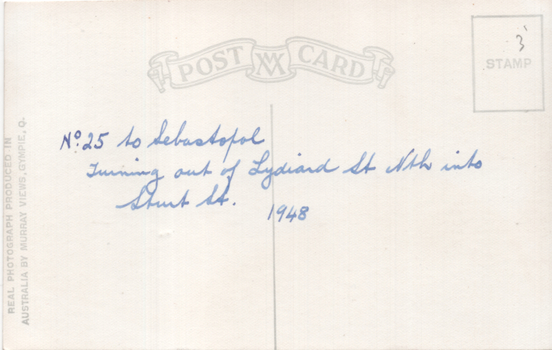 POST CARD
3
STAMP
Nº 25 to Sebastopol
Turning out of Lydiard St Nth into
Sturt St. 1948
REAL PHOTOGRAPH PRODUCED IN
AUSTRALIA BY MURRAY VIEWS, GYMPIE, Q.